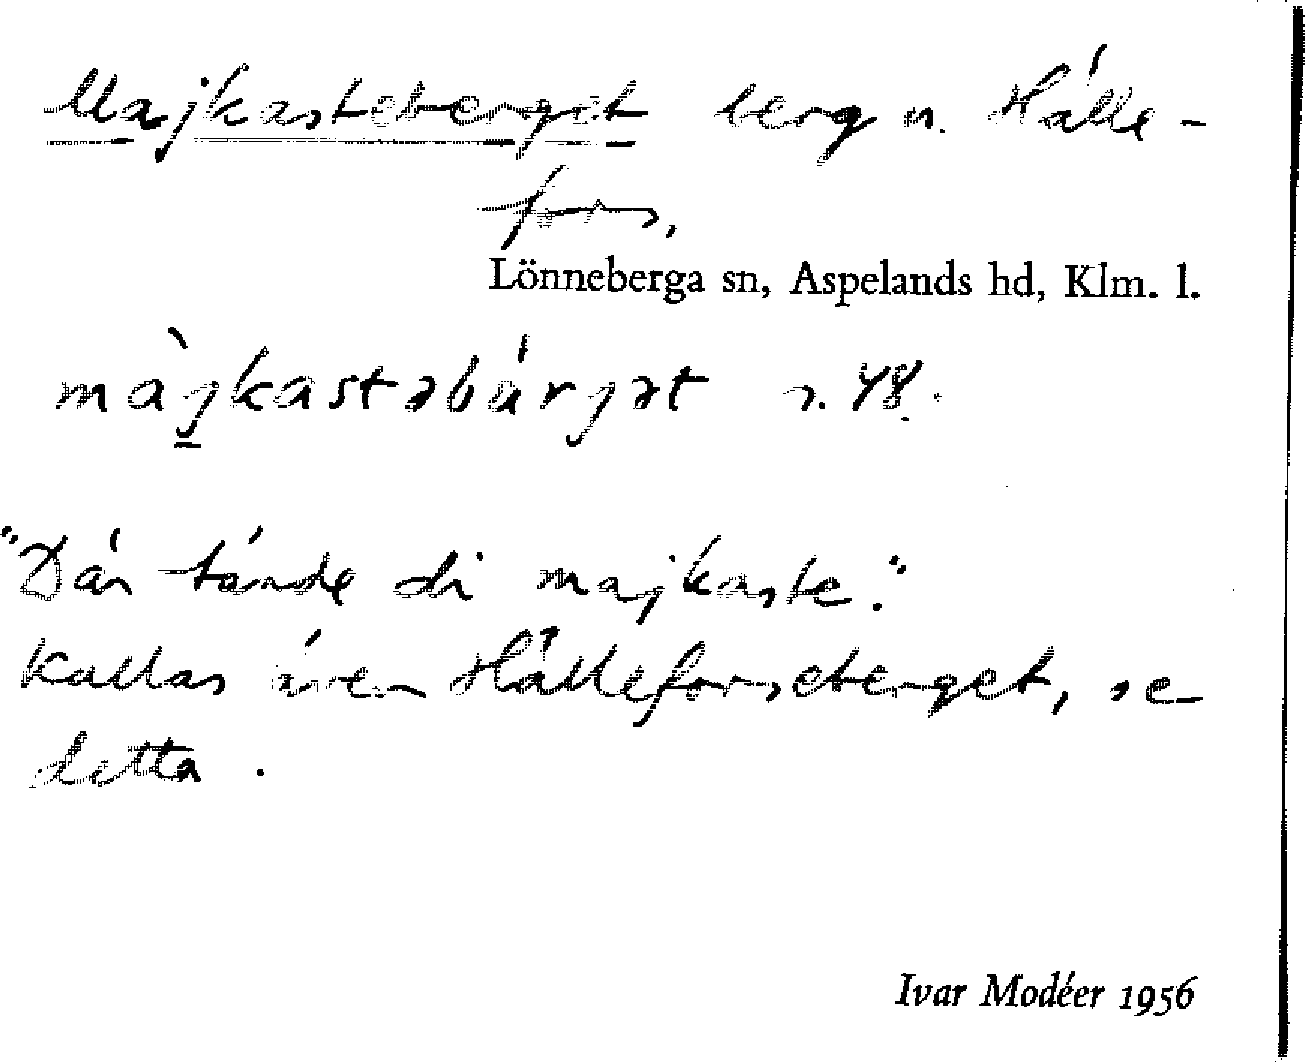 Majkasteberget berg n. Hälle-
fors,
Lönneberga sn, Aspelands hd, Klm. l.
màjkastəbárgət s. 48.
"Där tände di majkaste."
Kallas även Hälleforseberget, se
detta.
Ivar Modéer 1956